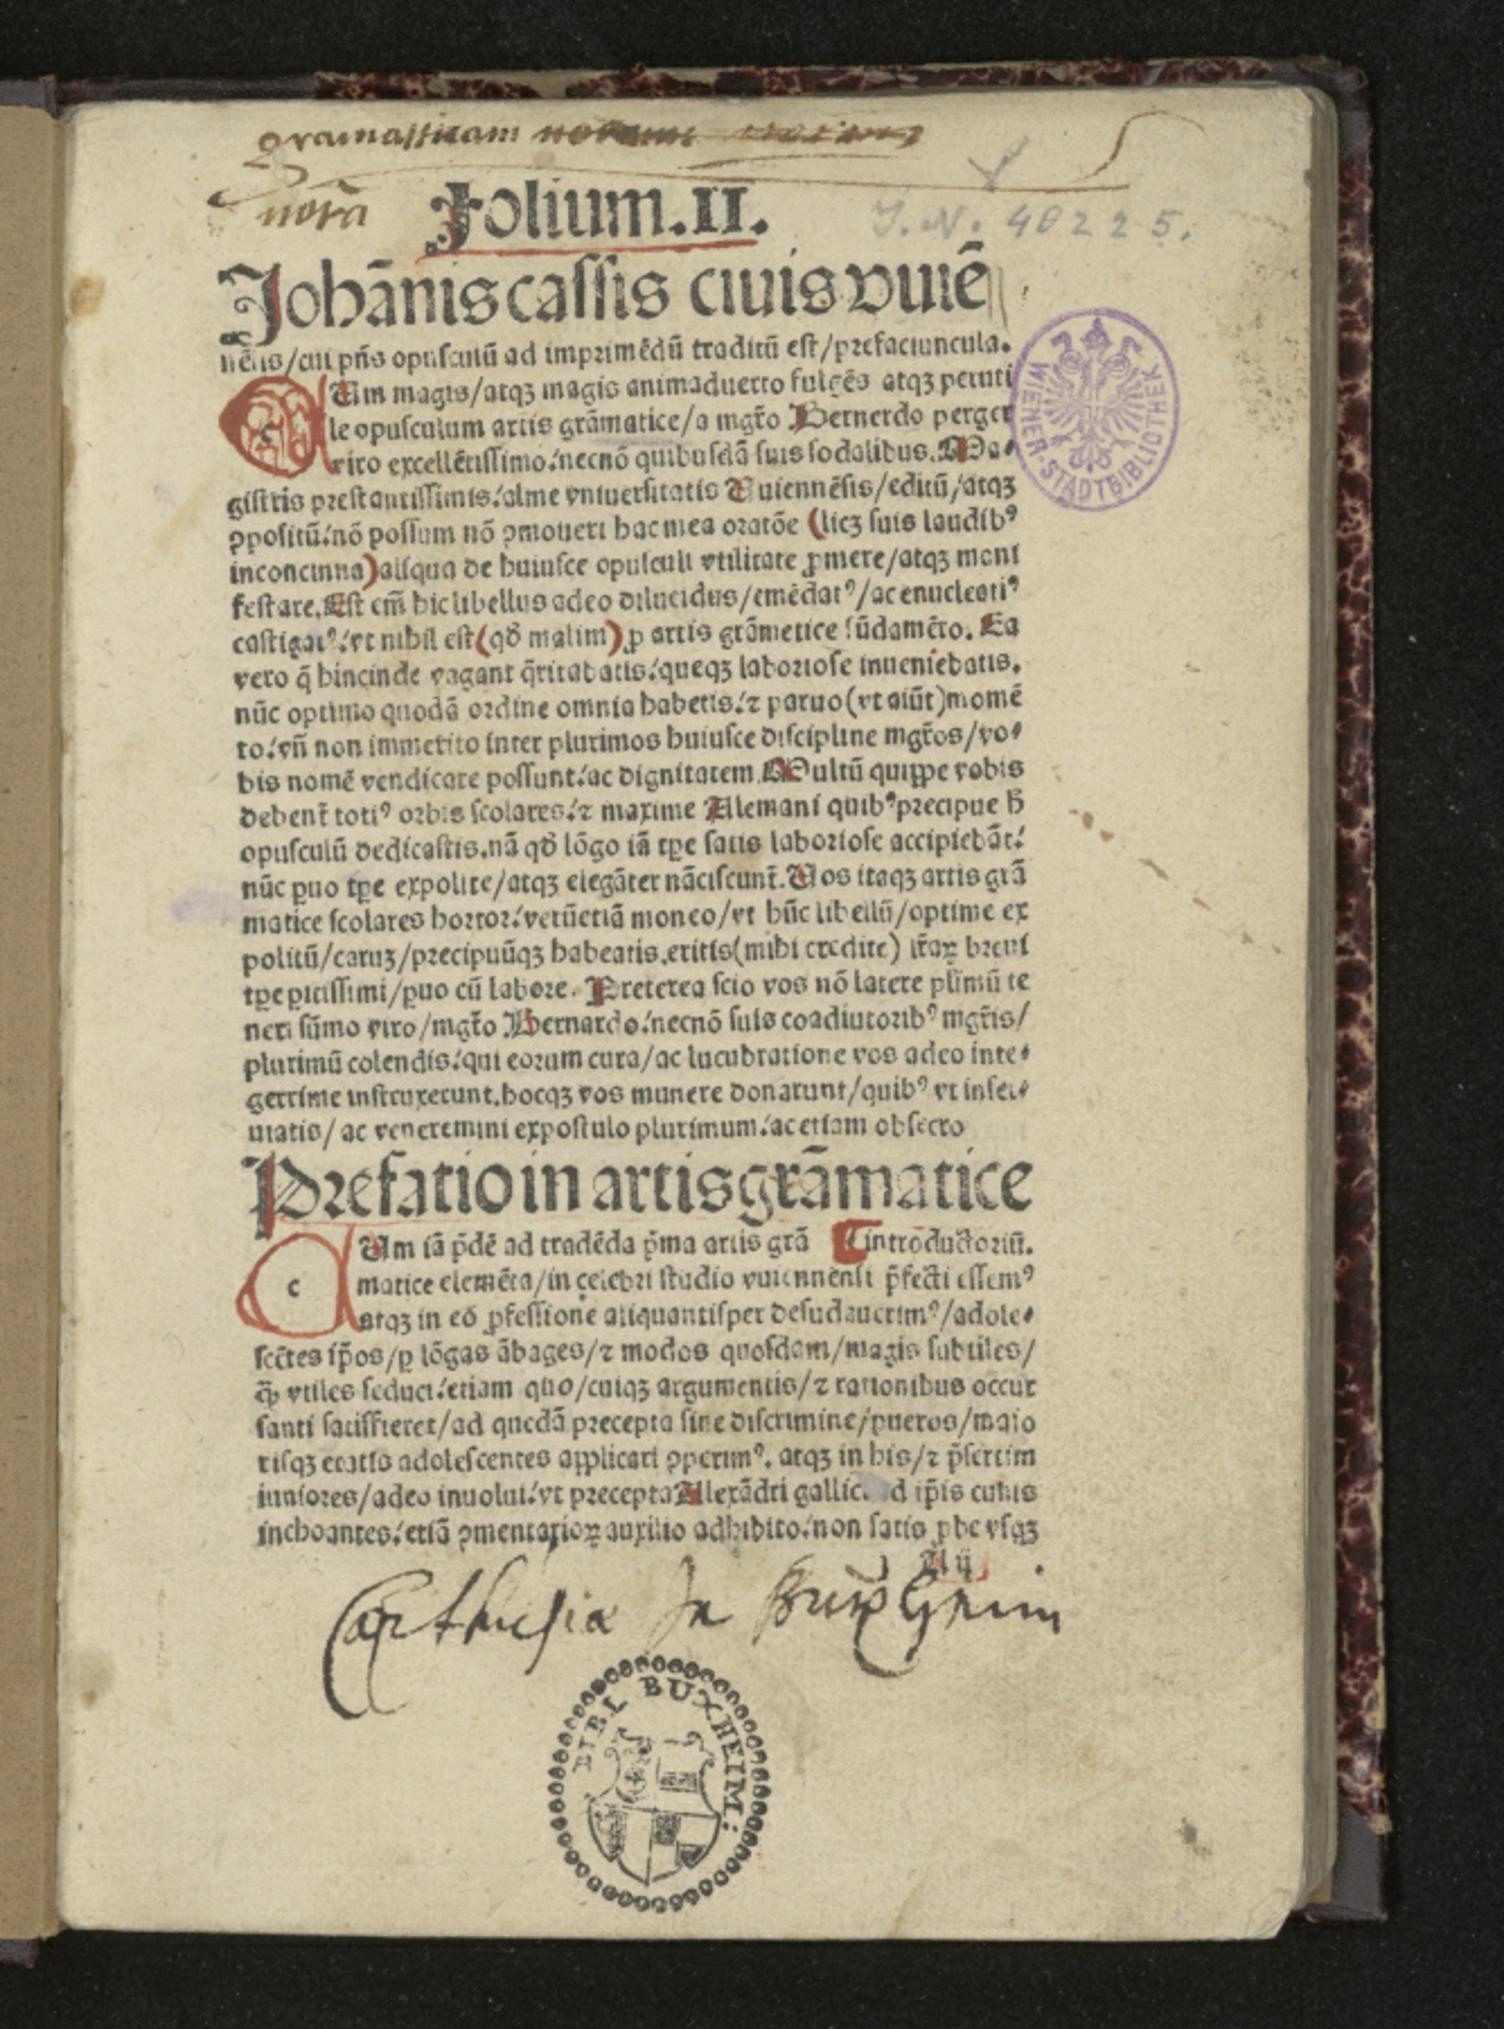 gramatticam novam
nova
Folium.II.
J. N. 40225.
Johānis cassis ciuis vuiē
nēsis/cui pn̄s opusculū ad imprimēdū traditū est/prefaciuncula.
c Um magis/atqꝫ magis animaduerto fulgēs atqꝫ peruti
le opusculum artis grāmatice/a mgr̄o Bernerdo perger
viro excellētissimo:necnō quibusdā suis sodalibus. Ma⸗
gistris prestantissimis:alme vniuersitatis Vuiennēsis/editū/atqꝫ
ꝯpositū:nō possum nō ꝯmoueri hac mea oratōe (licꝫ suis laudibꝰ
inconcinna) aliqua de huiusce opusculi vtilitate ꝓmere/atqꝫ mani
festare. Est em̄ hic libellus adeo dilucidus/emēdatꝰ/ac enucleatiꝰ
castigatꝰ:vt nihil est (qd̄ malim) ꝓ artis grāmetice fūdamēto. Ea
vero q̄ hincinde vagant q̄ritabatis:queqꝫ laboriose inueniebatis.
nūc optimo quodā ordine omnia habetis:⁊ paruo(vt aiūt)momē
to:vn̄ non immerito inter plurimos huiusce discipline mgr̄os/vo⸗
bis nomē vendicare possunt:ac dignitatem. Multū quippe vobis
debent̄ totiꝰ orbis scolares:⁊ maxime Alemani quibꝰ precipue h̄
opusculū dedicastis.nā qd̄ lōgo iā tꝑe satis laboriose accipiebāt:
nūc ꝑuo tꝑe expolite/atqꝫ elegāter nāciscunt̄. Vos itaqꝫ artis grā
matice scolares hortor:verūetiā moneo/vt hūc libellū/optime ex
politū/caruꝫ/precipuūqꝫ habeatis.eritis(mihi credite) lr̄aꝝ breui
tꝑe ꝑitissimi/ꝑuo cū labore. Preterea scio vos nō latere plīmū te
neri sūmo viro/mgr̄o Bernardo:necnō suis coadiutoribꝰ mgr̄is/
plurimū colendis:qui eorum cura/ac lucubratione vos adeo inte⸗
gerrime instruxerunt.hocqꝫ vos munere donarunt/quibꝰ vt insei⸗
uiatis/ ac veneremini expostulo plurimum:ac etiam obsecro
Prefatio in artis grāmatice
c Um iā p̄dē ad tradēda p̄ma artis grā ¶ introductoriū.
matice elemēta/in celebri studio vuiennensi p̄fecti essemꝰ
atqꝫ in eō ꝓfessione aliquantisper desudauerimꝰ/adole⸗
scētes ip̄os/ꝑ lōgas ābages/⁊ modos quosdam/magis subtiles/
ꝙ̄ vtiles seduci:etiam quo/cuiqꝫ argumentis/⁊ rationibus occur
santi satisfieret/ad quedā precepta sine discrimine/pueros/maio
risqꝫ etatis adolescentes applicari ꝯperimꝰ. atqꝫ in his/⁊ p̄sertim
iuniores/adeo inuolui:vt precepta Allexādri gallici ad ip̄is cuius
inchoantes:etiā ꝯmentarioꝝ auxilio adhibito:non satis ꝓbe vsqꝫ
Aij
Carthusia In Buxheim
WIENER-STADTBIBLIOTHEK
BIBL BUXHEIM: